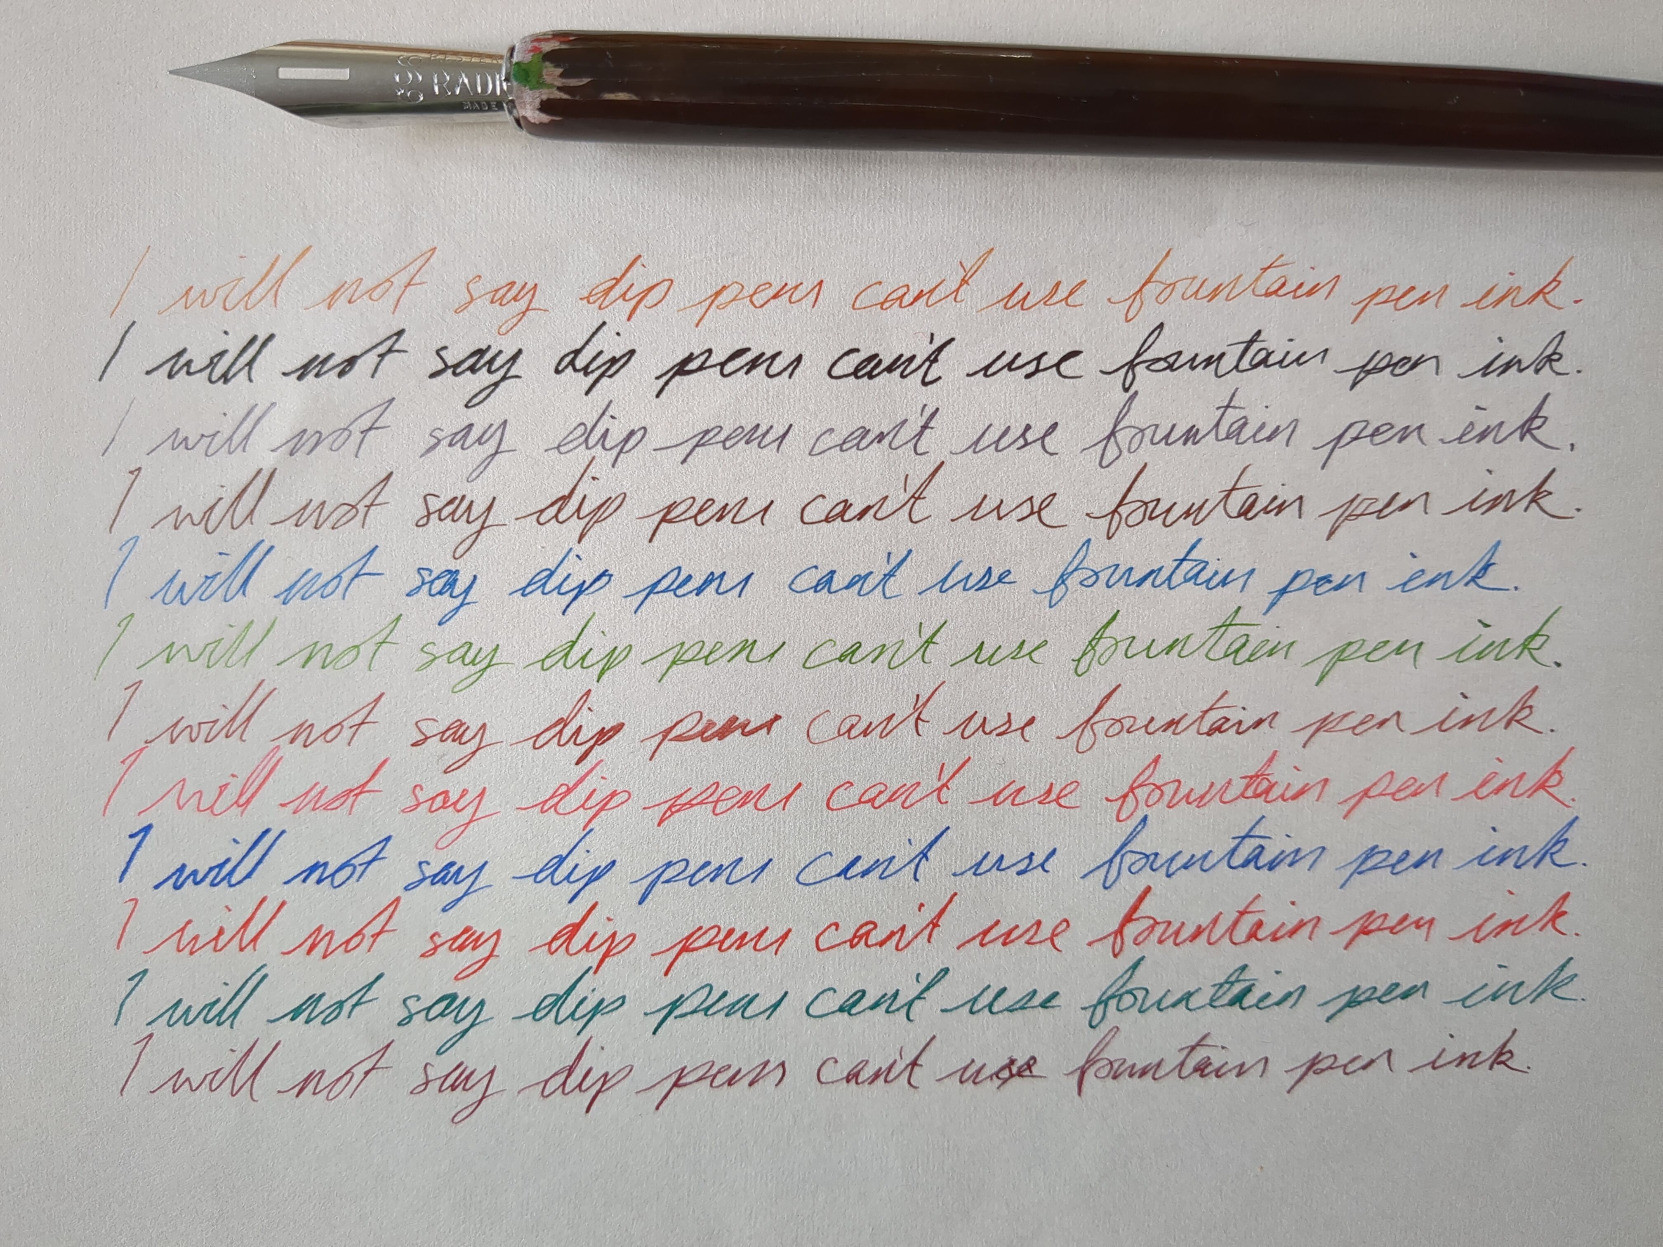 RADI
MADE
I will not say dip pens can't use fountain pen ink.
I will not say dip pens can't use fountain pen ink.
I will not say dip pens can't use fountain pen ink.
I will not say dip pens can't use fountain pen ink.
I will not say dip pens can't use fountain pen ink.
I will not say dip pens can't use fountain pen ink.
I will not say dip pens can't use fountain pen ink.
I will not say dip pens can't use fountain pen ink.
I will not say dip pens can't use fountain pen ink.
I will not say dip pens can't use fountain pen ink.
I will not say dip pens can't use fountain pen ink.
I will not say dip pens can't use fountain pen ink.